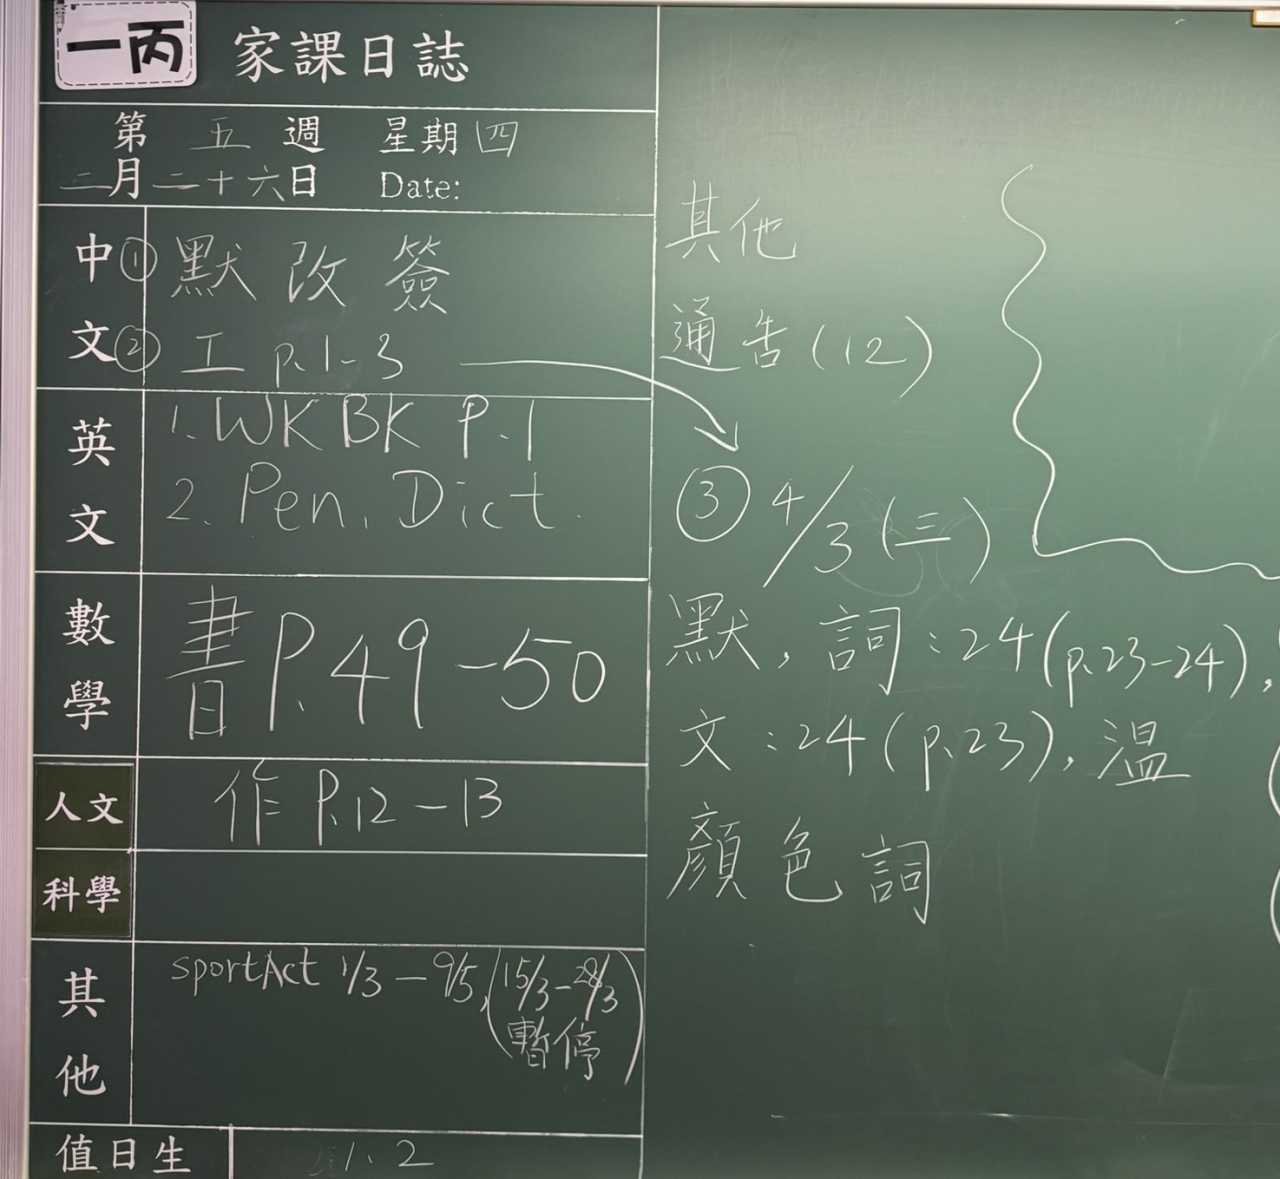 一丙 家課日誌
第 五 週 星期 四
二月二十六日 Date:
中文 ① 默 改 簽
② 工 p.1-3
英文 1. WKBK P.1
2. Pen. Dict.
數學 書 P.49-50
人文 作 P.12-13
科學
其他 sportAct 1/3 — 9/5, (15/3-28/3
暫停)
值日生 1、2
其他
通告(12)
③ 4/3 (三)
默, 詞:24(p.23-24),
文:24(p.23), 溫
顏色詞